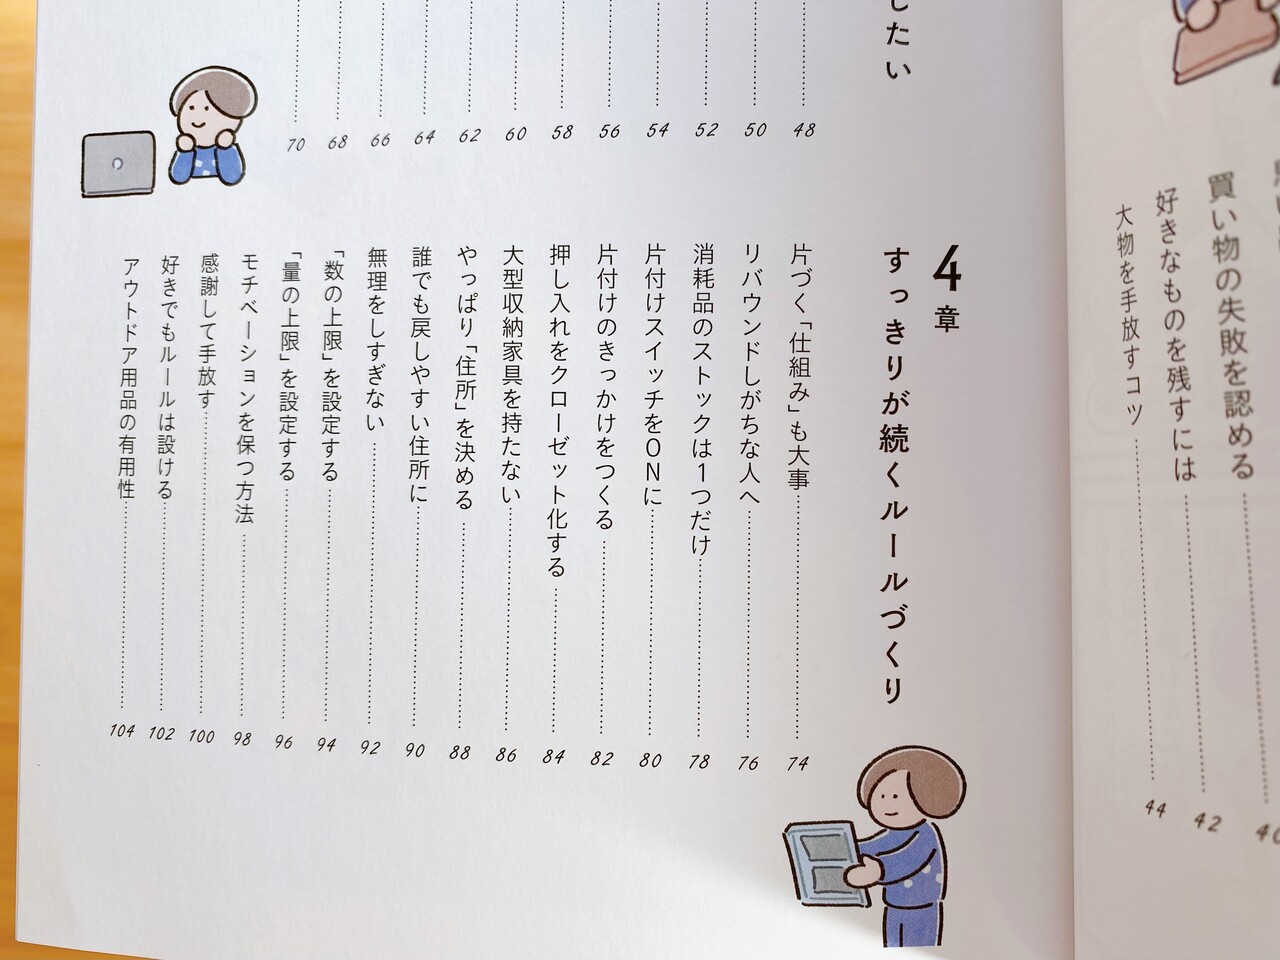 買い物の失敗を認める 40
好きなものを残すには 42
大物を手放すコツ 44
したい
48
50
52
54
56
58
60
62
64
66
68
70
4章
すっきりが続くルールづくり
片づく「仕組み」も大事 74
リバウンドしがちな人へ 76
消耗品のストックは1つだけ 78
片付けスイッチをONに 80
片付けのきっかけをつくる 82
押し入れをクローゼット化する 84
大型収納家具を持たない 86
やっぱり「住所」を決める 88
誰でも戻しやすい住所に 90
無理をしすぎない 92
「数の上限」を設定する 94
「量の上限」を設定する 96
モチベーションを保つ方法 98
感謝して手放す 100
好きでもルールは設ける 102
アウトドア用品の有用性 104